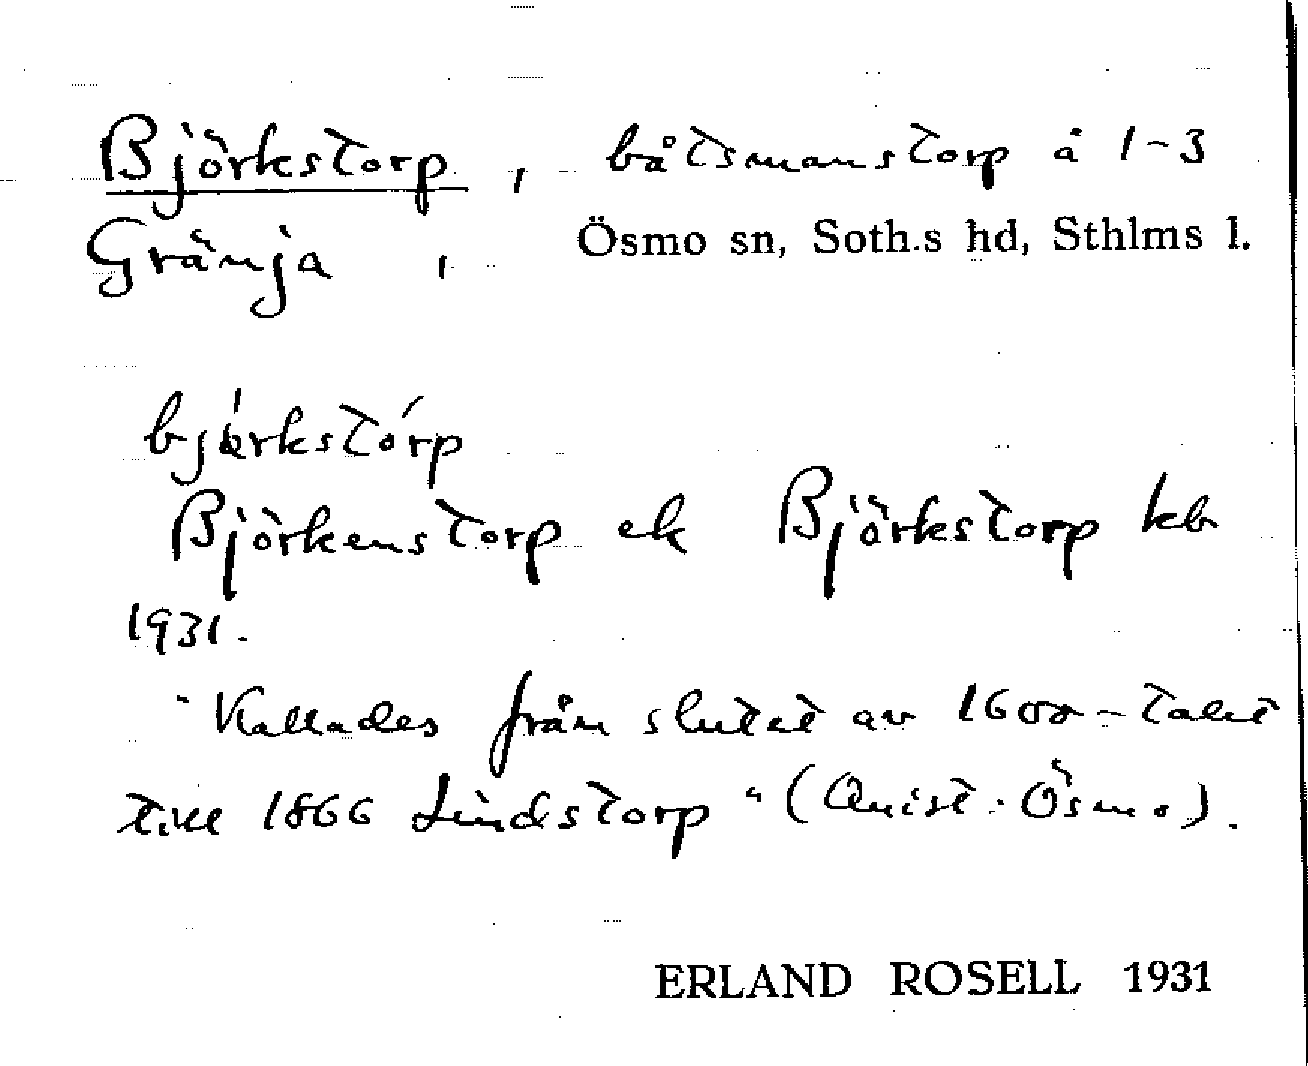 Björkstorp, båtsmanstorp å 1-3
Gränja, Ösmo sn, Soth.s hd, Sthlms l.
björkstórp
Björkenstorp ek Björkstorp kb
1931.
"Kallades från slutet av 1600-talet
till 1866 Lindstorp" (Quist: Ösmo).
ERLAND ROSELL 1931